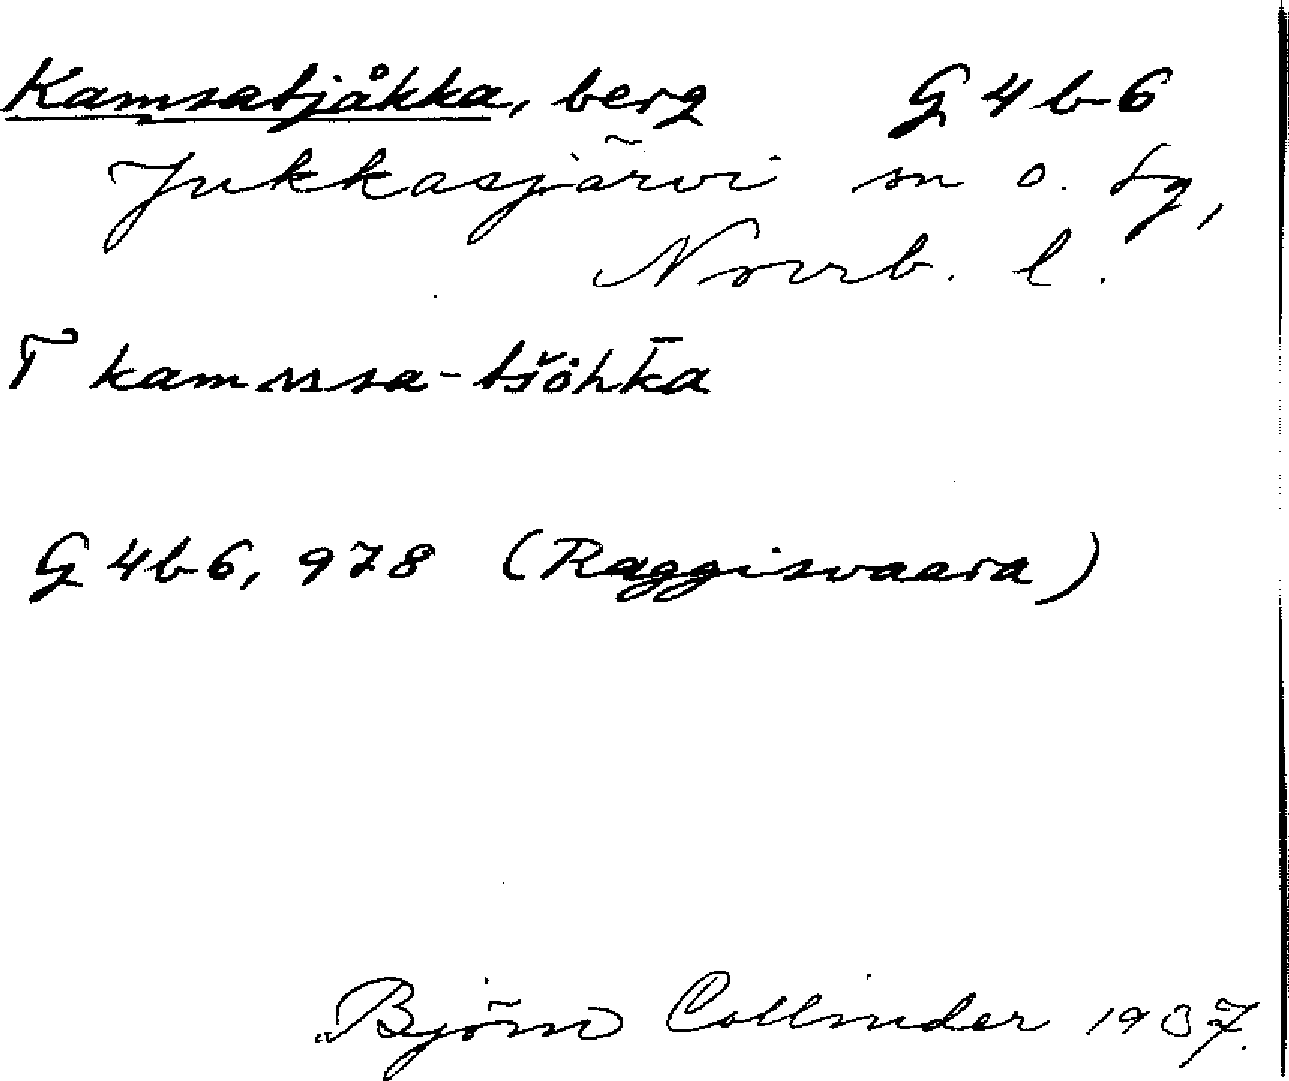 Kamsatjåkka, berg G 4 b 6
Jukkasjärvi sn o. tg,
Norrb. l.
T kamssa-tšåhk̄a
G 4b 6, 978 (Raggisvaara)
Björn Collinder 1937.